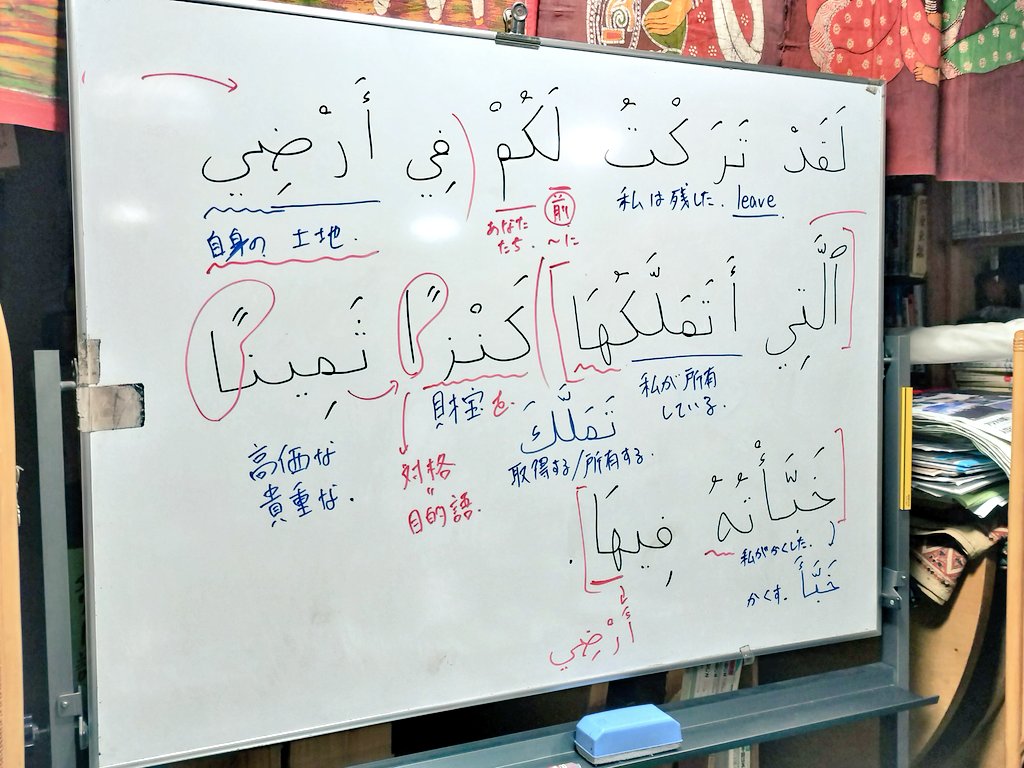 لَقَدْ تَرَكْتُ لَكُمْ فِي أَرْضِي
私は残した. leave
前
あなたたち. ~に
自身の 土地.
ٱلَّتِي أَتَمَلَّكُهَا كَنْزًا ثَمِينًا
私が所有
している.
財宝を
تَمَلَّكَ
取得する/所有する.
対格
"
目的語.
高価な
貴重な.
خَبَّأْتُهُ فِيهَا.
私がかくした.
かくす. خَبَّأَ
أَرْضِي